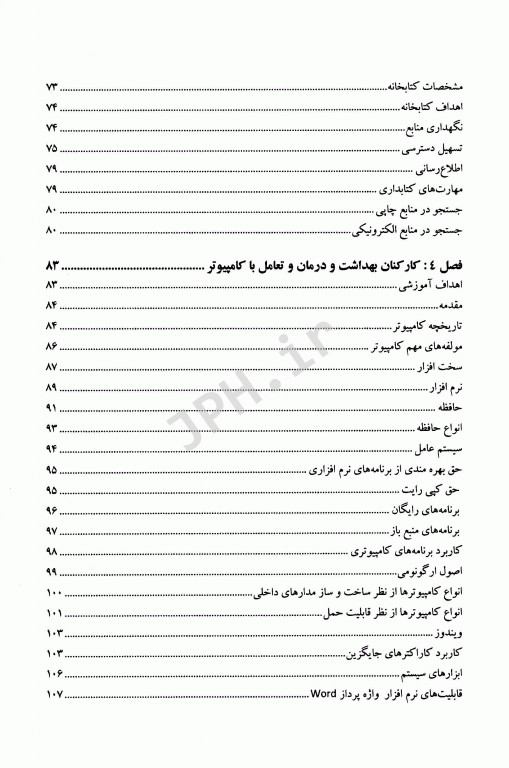 مشخصات کتابخانه ........ ۷۳
اهداف کتابخانه ........ ۷۴
نگهداری منابع ........ ۷۴
تسهیل دسترسی ........ ۷۵
اطلاع‌رسانی ........ ۷۹
مهارت‌های کتابداری ........ ۷۹
جستجو در منابع چاپی ........ ۸۰
جستجو در منابع الکترونیکی ........ ۸۰
فصل ٤: کارکنان بهداشت و درمان و تعامل با کامپیوتر ........ ۸۳
اهداف آموزشی ........ ۸۳
مقدمه ........ ۸۴
تاریخچه کامپیوتر ........ ۸۴
مولفه‌های مهم کامپیوتر ........ ۸۶
سخت افزار ........ ۸۷
نرم افزار ........ ۸۹
حافظه ........ ۹۱
انواع حافظه ........ ۹۳
سیستم عامل ........ ۹۴
حق بهره مندی از برنامه‌های نرم افزاری ........ ۹۵
حق کپی رایت ........ ۹۵
برنامه‌های رایگان ........ ۹۶
برنامه‌های منبع باز ........ ۹۷
کاربرد برنامه‌های کامپیوتری ........ ۹۸
اصول ارگونومی ........ ۹۹
انواع کامپیوترها از نظر ساخت و ساز مدارهای داخلی ........ ۱۰۰
انواع کامپیوترها از نظر قابلیت حمل ........ ۱۰۱
ویندوز ........ ۱۰۳
کاربرد کاراکترهای جایگزین ........ ۱۰۳
ابزارهای سیستم ........ ۱۰۶
قابلیت‌های نرم افزار واژه پرداز Word ........ ۱۰۷
JPH.ir